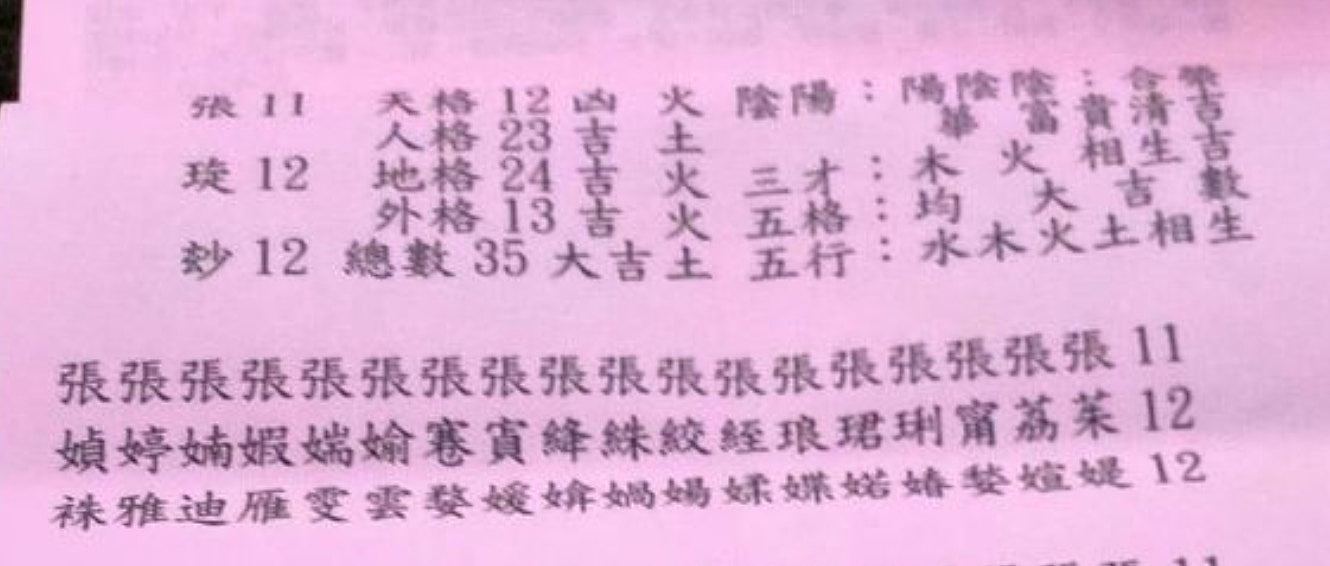 張 11 天格 12 凶 火 陰陽：陽陰陰：合
人格 23 吉 土 華富貴清吉
琁 12 地格 24 吉 火 三才：木火相生吉
外格 13 吉 火 五格：均大吉數
12 總數 35 大吉土 五行：水木火土相生
張張張張張張張張張張張張張張張張張張 11
媜婷婻婽媏媮寋寊絳絑絞絰琅珺琍甯荔茱 12
袾雅迪雁雯雲婺媛媕媧婸媃媟婼媋婺媗媞 12